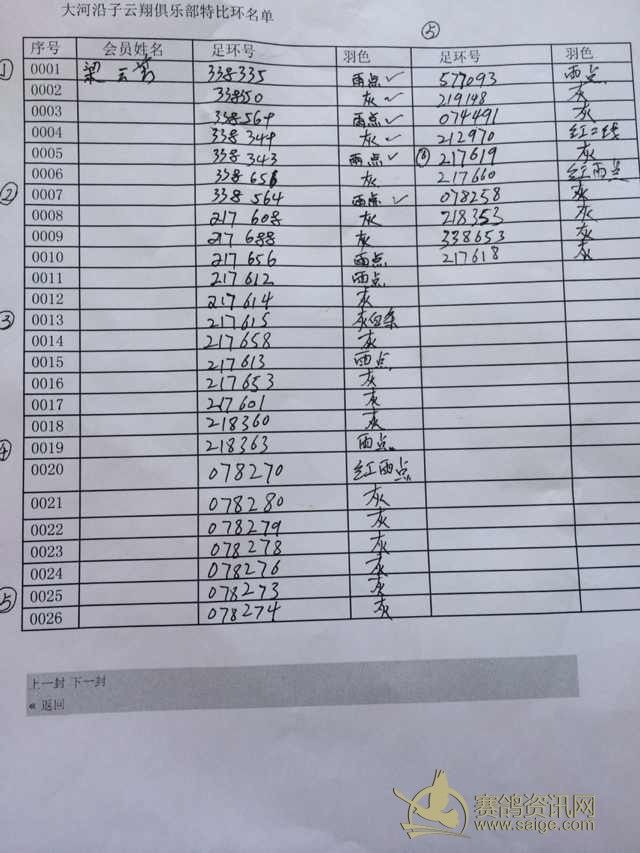 大河沿子云翔俱乐部特比环名单
⑤
序号 会员姓名 足环号 羽色 足环号 羽色
① 0001 梁云 338335 雨点✓ 577093 雨点
0002 33850 灰✓ 219148 灰
0003 338569 雨点✓ 074491 灰
0004 338349 灰✓ 212970 红二线
0005 338343 雨点✓ ⑥ 217619 灰
0006 338656 灰 217660 红雨点
② 0007 338564 雨点✓ 078258 灰
0008 217608 灰 218353 灰
0009 217688 灰 338653 灰
0010 217656 雨点 217618 灰
0011 217612 雨点
0012 217614 灰
③ 0013 217615 灰白条
0014 217658 灰
0015 217613 雨点
0016 217653 灰
0017 217601 灰
0018 218360 灰
④ 0019 218363 雨点
0020 078270 红雨点
0021 078280 灰
0022 078279 灰
0023 078278 灰
0024 078276 灰
⑤ 0025 078273 灰
0026 078274 灰
上一封 下一封
« 返回
赛鸽资讯网
www.saige.com